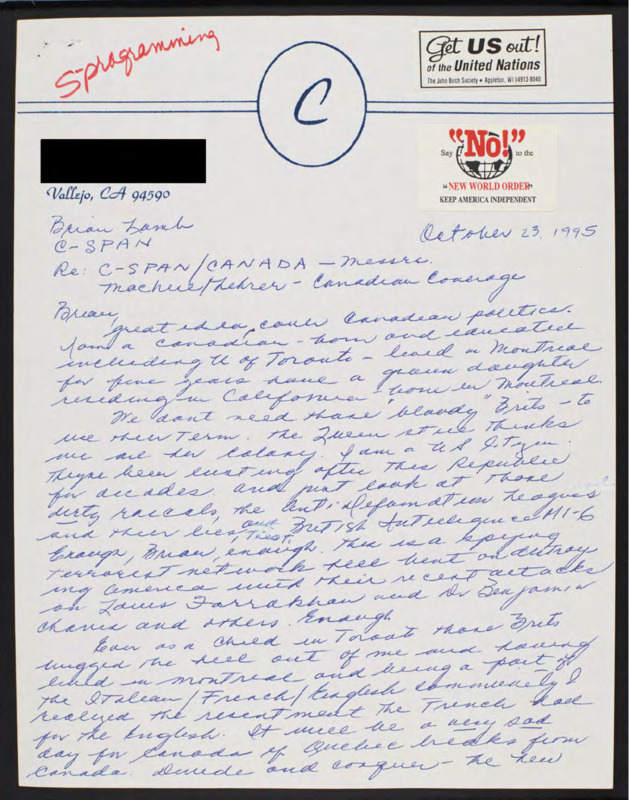 S-programming
Get US out!
of the United Nations
The John Birch Society • Appleton, WI 54913-8040
C
Say "NO!" to the
"NEW WORLD ORDER"
KEEP AMERICA INDEPENDENT
Vallejo, CA 94590
October 23, 1995
Brian Lamb
C-SPAN
Re: C-SPAN/CANADA – Messrs.
Lehrer – Canadian Coverage
Brian,
great idea, cover Canadian politics.
I am a Canadian – born and educated
including U of Toronto – lived in Montreal
for five years have a grown daughter
residing in California – born in Montreal.
We dont need those "bloody" Brits – to
use their term. The Queen still thinks
we are her colony. I am a US Citizen.
Theyve been lusting after this Republic
for decades and just look at those
dirty rascals, the Anti Defamation Leagues
and their lies, and British Intelligence MI-6
Enough, Brian, enough. This is a spying
terrorist network hell bent on destroy
ing America with their recent attacks
on Louis Farrakhan and Dr Benjamin
Chavis and others. Enough
Even as a child in Toronto those Brits
bugged the hell out of me and having
lived in Montreal and being a part of
the Italian/French/English community I
realized the resentment the French had
for the English. It will be a very sad
day for Canada if Quebec breaks from
Canada. Divide and conquer – the new